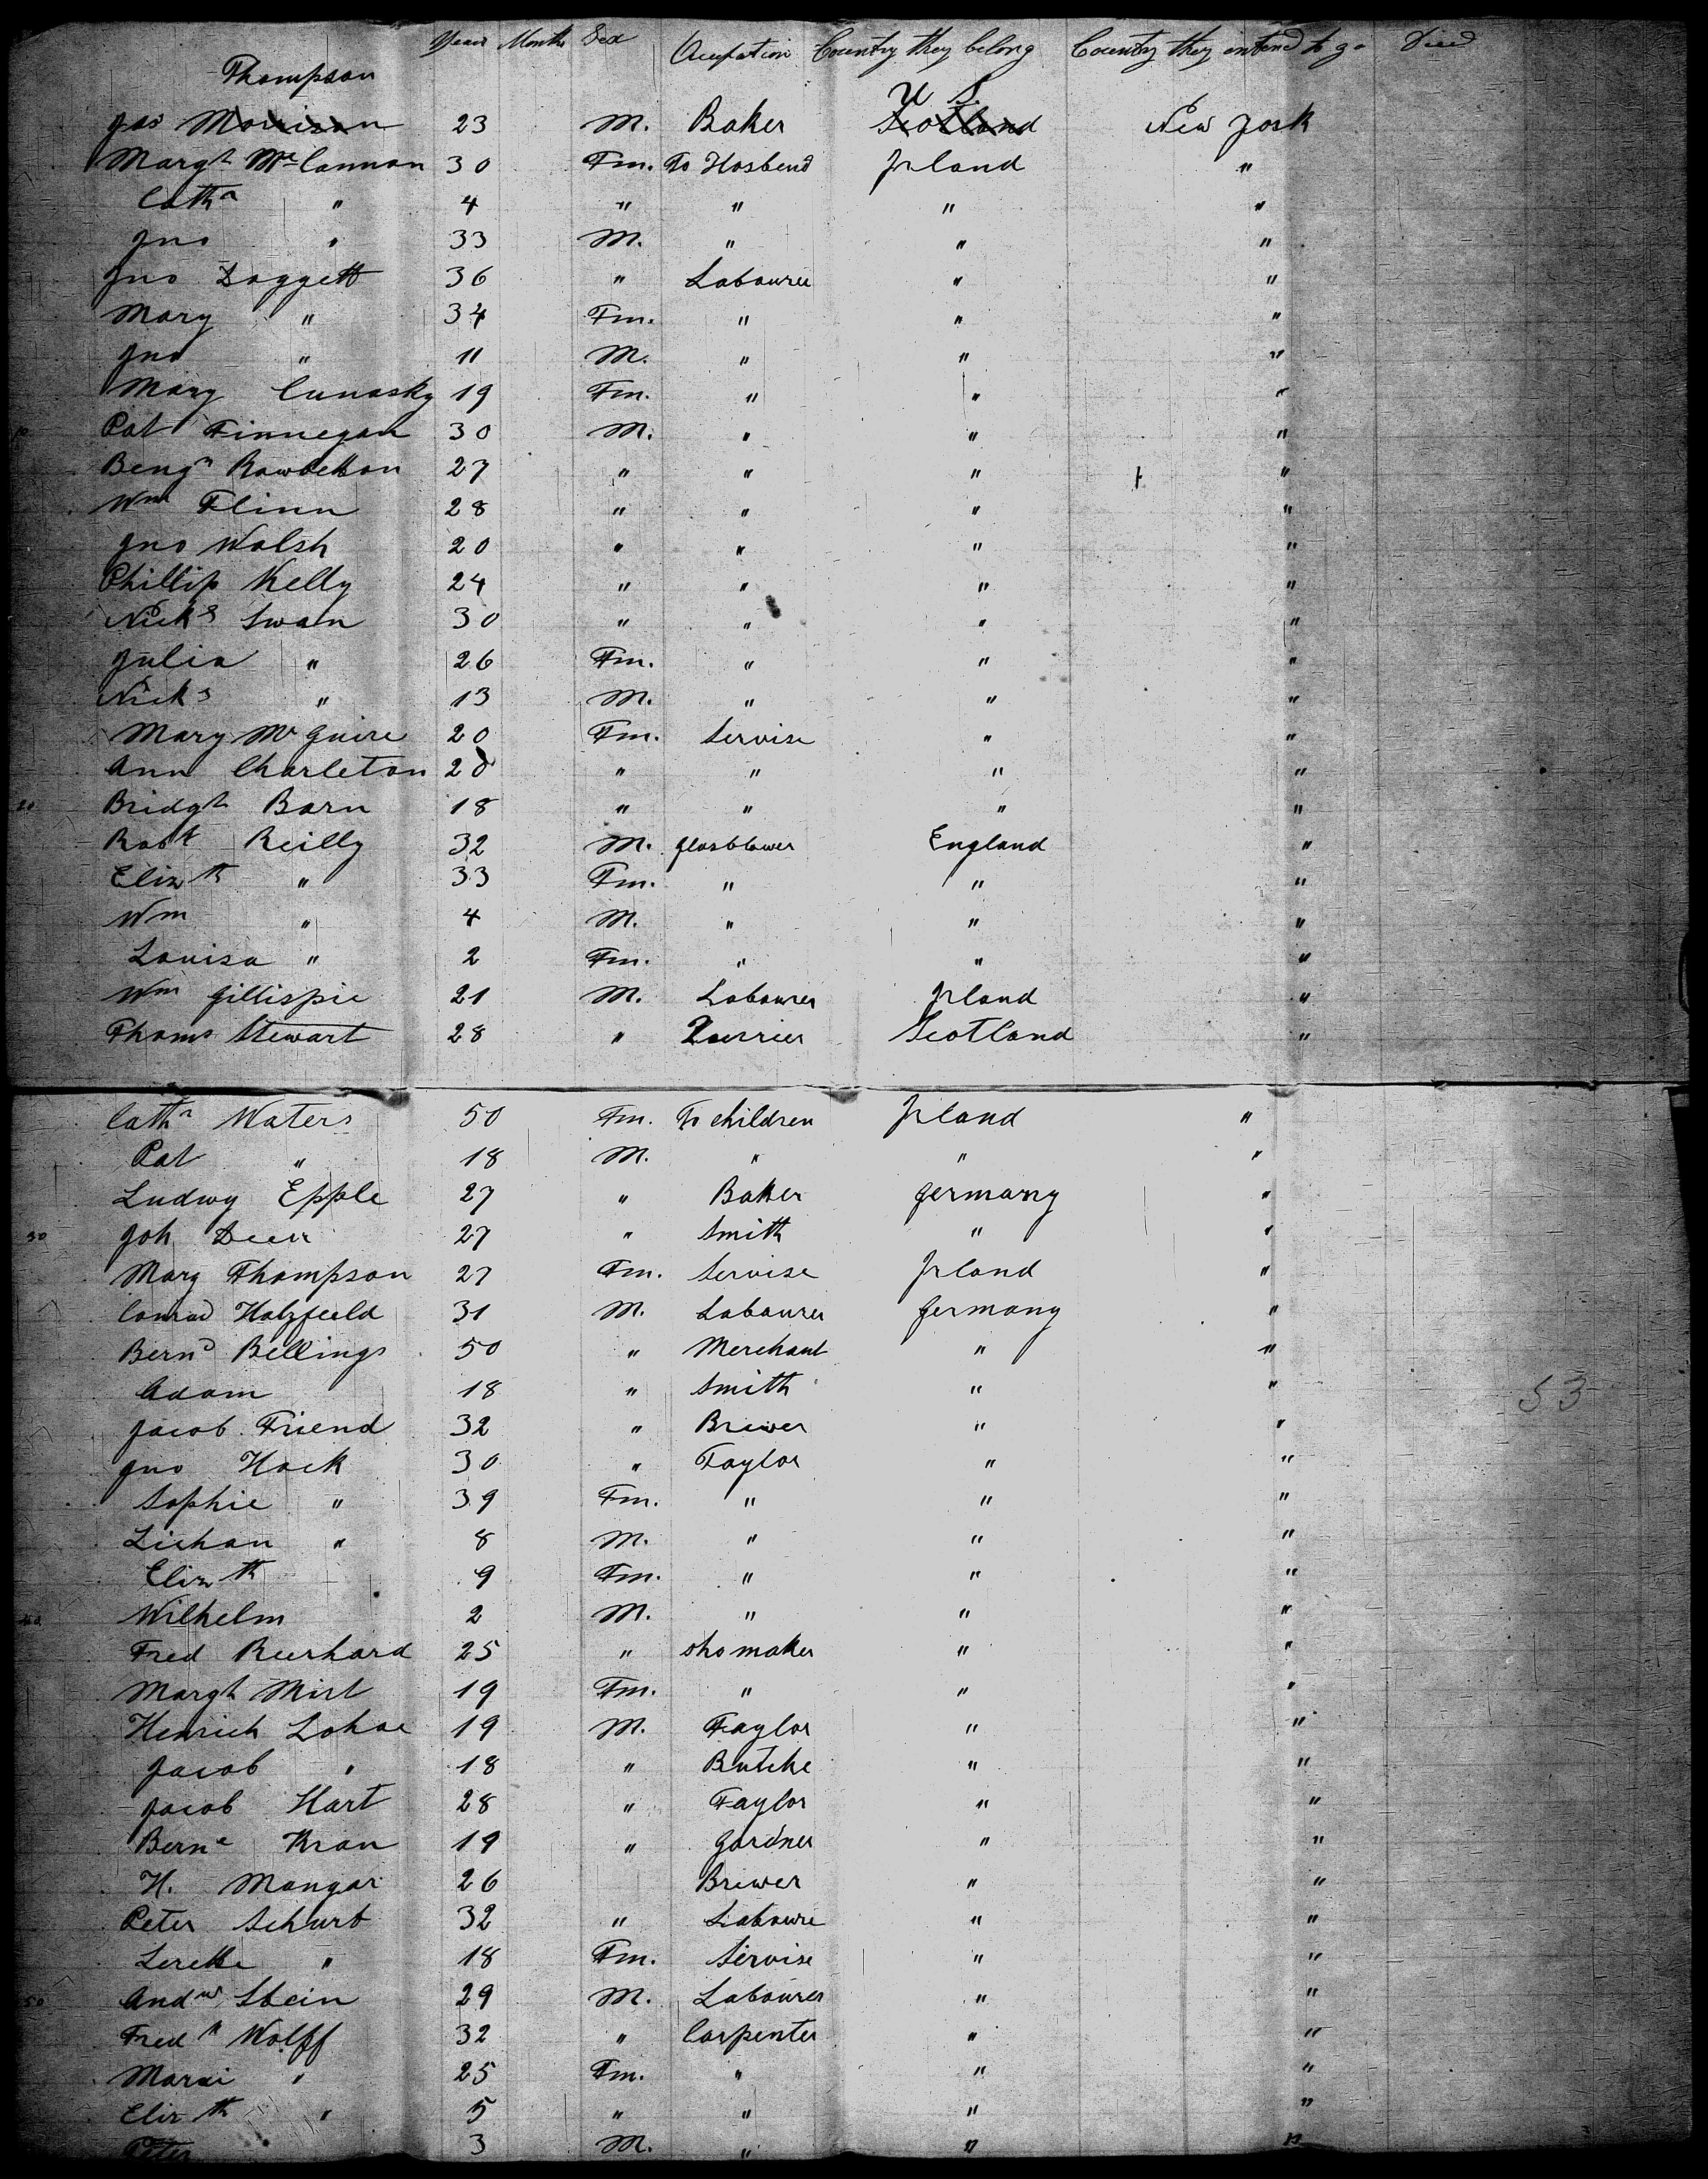 Years Months Sex Ocupation Country they belong Country they intend to go Died
Thompson U S.
Jas Morrison 23 M. Baker Scotland New York
Margt McCannon 30 Fm. To Hosbend Irland "
Catha " 4 " " " "
Jno " 33 M. " " "
Jno Doggett 36 " Labourer " "
Mary " 34 Fm. " " "
Jno " 11 M. " " "
Mary Cunasky 19 Fm. " " "
10 Pat Finnegan 30 M. " " "
Bengn 27 " " " "
Wm Flinn 28 " " " "
Jno Walsh 20 " " " "
Phillip Kelly 24 " " " "
Nicks Swan 30 " " " "
Julia " 26 Fm. " " "
Nicks " 13 M. " " "
Mary McGuire 20 Fm. Servise " "
Ann Charleton 20 " " " "
20 Bridgt Barn 18 " " " "
Robt Reilly 32 M. glasblower England "
Elizth " 33 Fm. " " "
Wm " 4 M. " " "
Louisa " 2 Fm. " " "
Wm Gillispie 21 M. Labourer Irland "
Thoms Stewart 28 " Scotland "
Catha Waters 50 Fm. To children Irland "
Pat " 18 M. " " "
Ludwg Epple 27 " Baker Germany "
30 Joh Deer 27 " Smith " "
Mary Thompson 27 Fm. Servise Irland "
Conrad Holzfeeld 31 M. Labourer Germany "
Bernd Bellings 50 " Merchant " "
Adam 18 " Smith " "
53
Jacob Friend 32 " Brewer " "
Jno Hack 30 " Taylor " "
Sophie " 39 Fm. " " "
Lichan " 8 M. " " "
Elizth 9 Fm. " " "
40 Wilhelm 2 M. " " "
Fred Beerhard 25 " shomaker " "
Margt Mirt 19 Fm. " " "
Henrich Lohae 19 M. Taylor " "
Jacob " 18 " Butche " "
Jacob Hart 28 " Taylor " "
Berne Kran 19 " Gardner " "
H. Mangar 26 Brewer " "
Peter Schurt 32 " Laboure " "
Lerette " 18 Fm. Servise " "
50 Andw Stein 29 M. Labourer " "
Fredk Wolff 32 " Carpenter " "
Marai " 25 Fm. " " "
Elizth " 5 " " " "
Peter 3 M. " " "